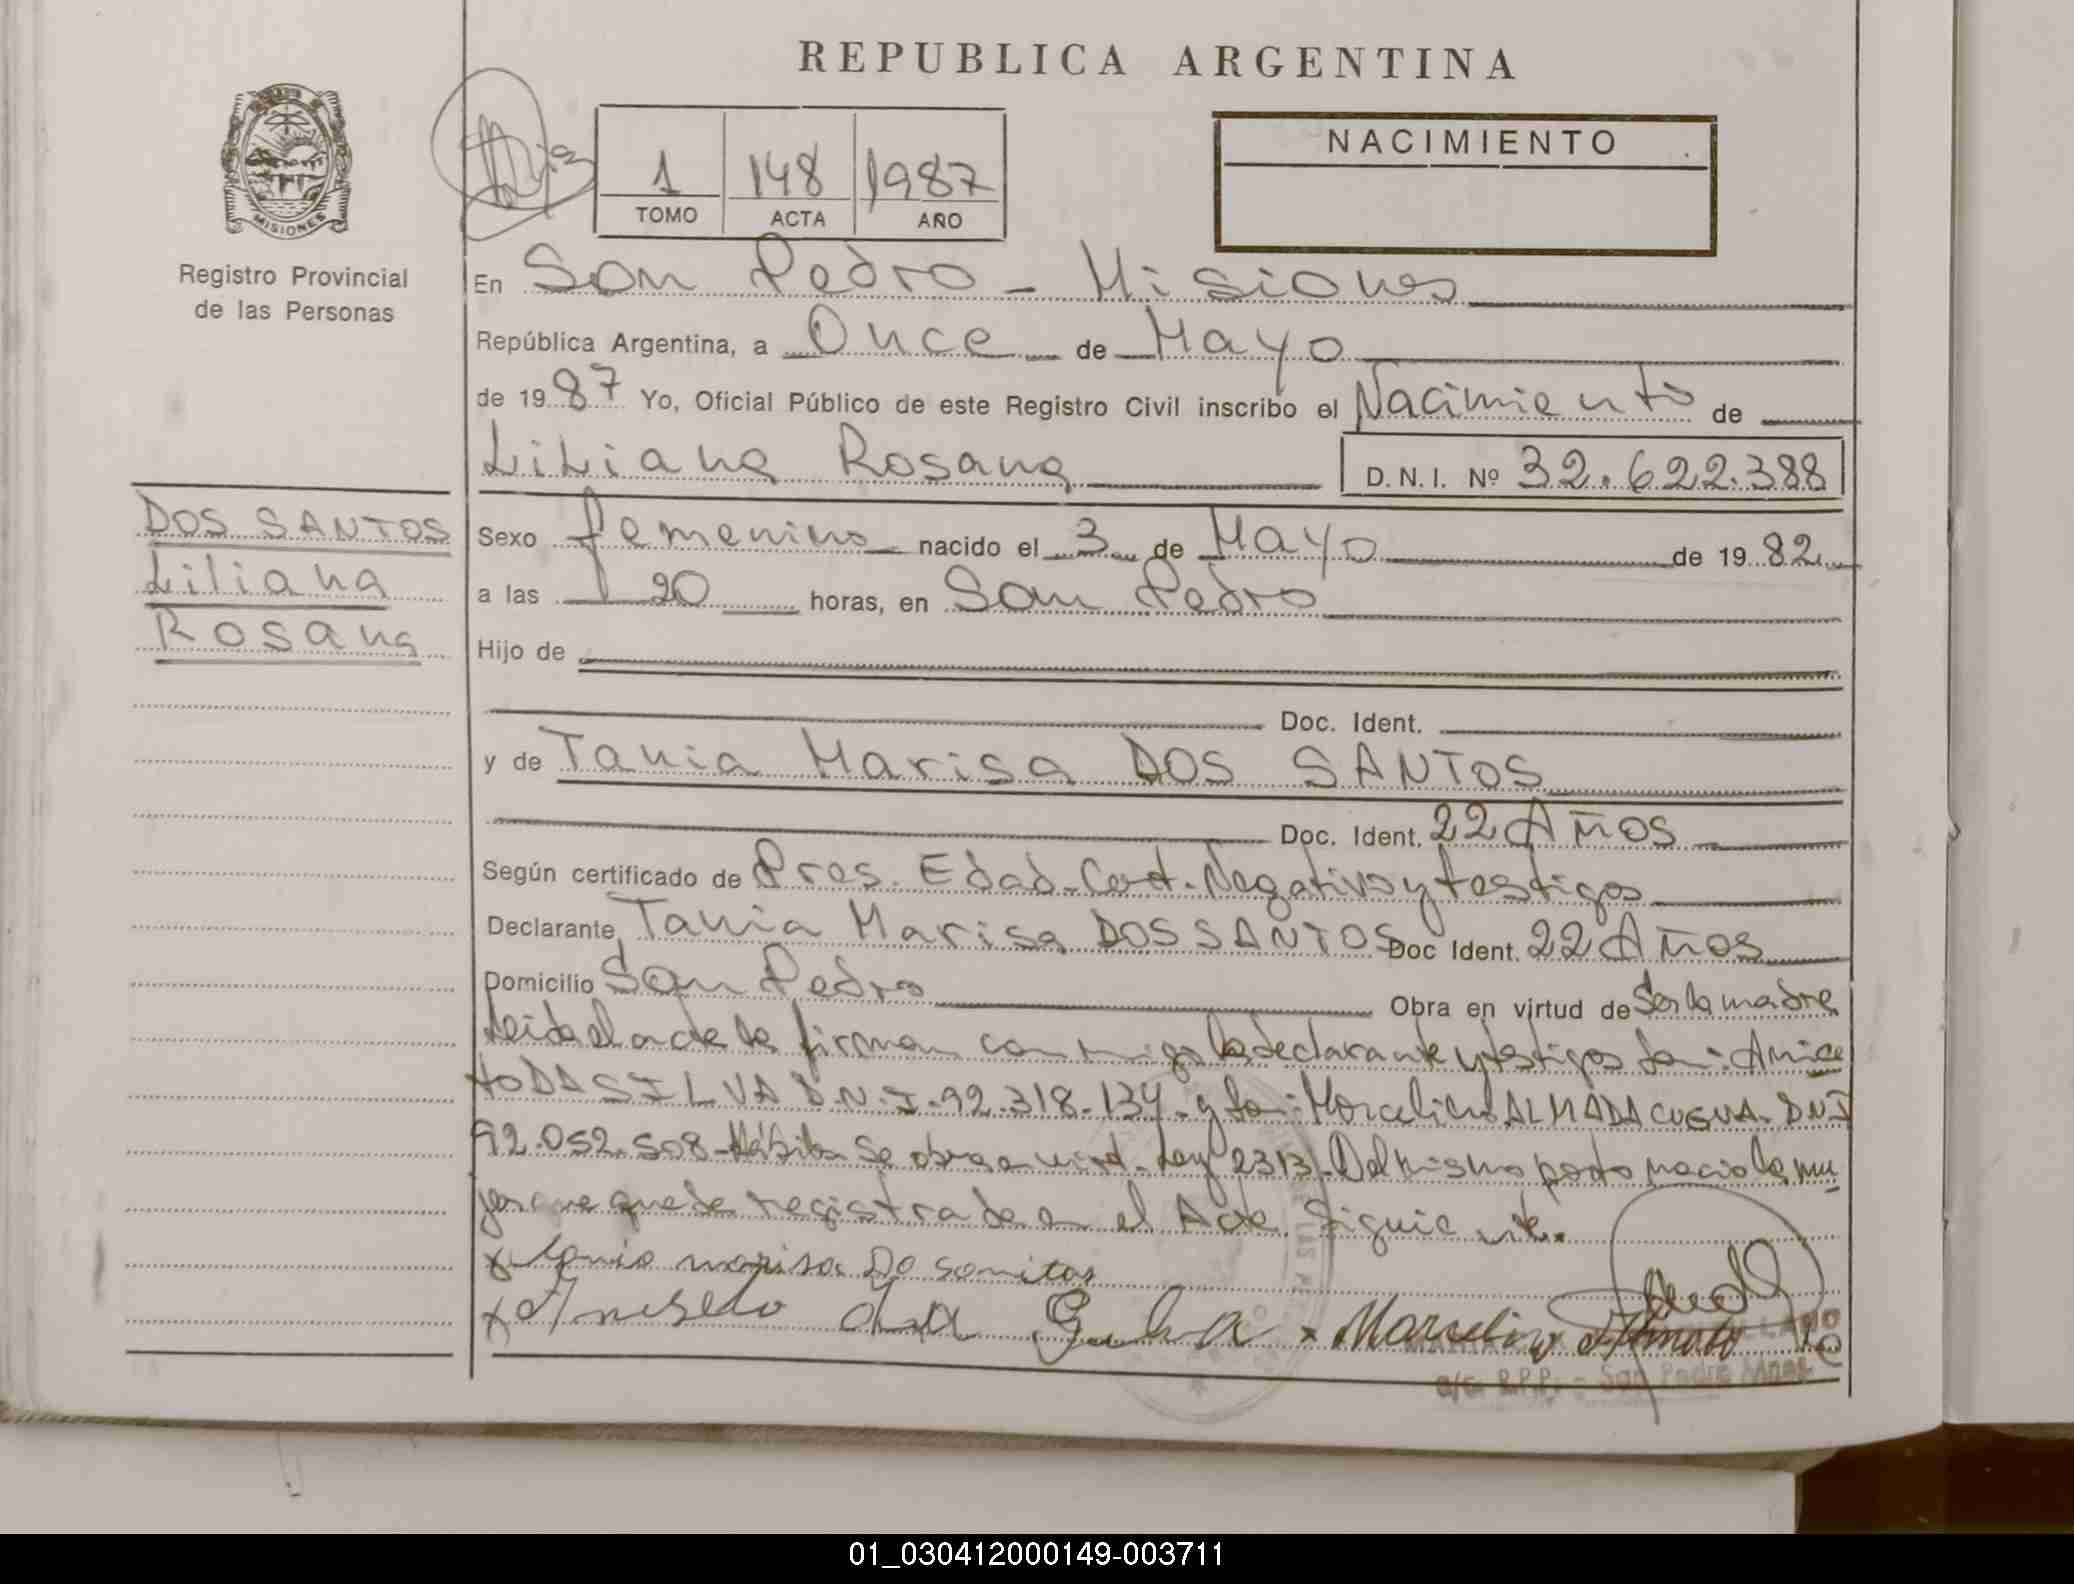 REPUBLICA ARGENTINA
MISIONES
Registro Provincial
de las Personas
1 148 1987
TOMO ACTA AÑO
NACIMIENTO
En San Pedro - Misiones
República Argentina, a Once de Mayo
de 1987 Yo, Oficial Público de este Registro Civil inscribo el Nacimiento de
Liliana Rosana D.N.I. Nº 32.622.388
DOS SANTOS
Liliana
Rosana
Sexo femenino nacido el 3 de Mayo de 1982
a las 20 horas, en San Pedro
Hijo de
Doc. Ident.
y de Tania Marisa DOS SANTOS
Doc. Ident. 22 AÑOS
Según certificado de Pres. Edad-Cert. Negativo y testigos
Declarante Tania Marisa DOS SANTOS Doc Ident. 22 AÑOS
Domicilio San Pedro Obra en virtud de Ser la madre
Leida el acta la firman conmigo la declarante y testigos Don: Anice
to DA SILVA D.N.I. 92.318.134 y Don: Marcelino ALMADA D.N.I
92.052.508 - Se obra Ley 2313. Del mismo parto nacio la
que queda registrada en el Acta Siguiente.
x Tania marisa Do
x da x Marcelino
a/c. R.P.P. - San Pedro Mnes
01_030412000149-003711